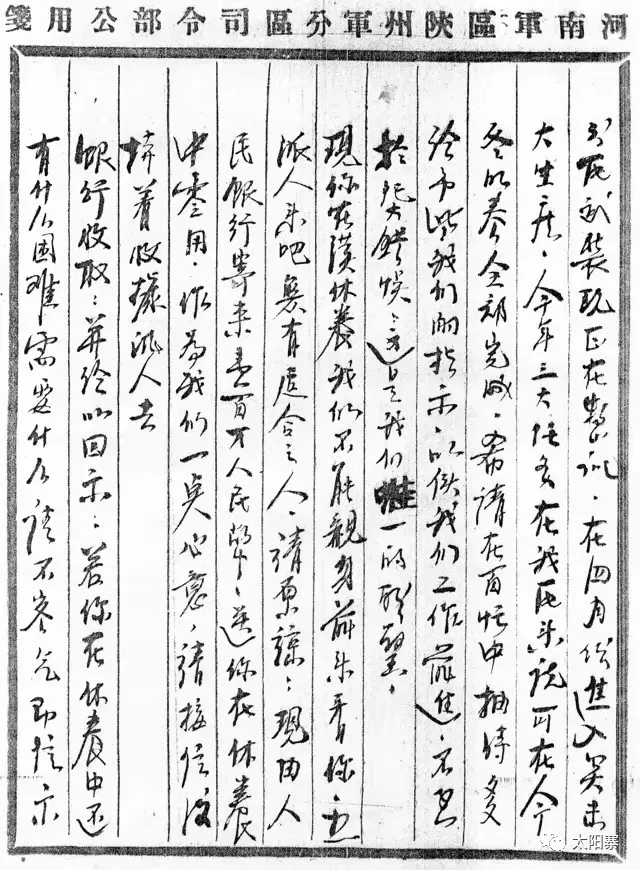 河南軍區陝州軍分區司令部公用箋
民武装现正在整訓．在四月份進入突击
大生产．今年三大任务在我区来说可在今
冬以全部完成．希請在百忙中抽時多
给予些我们的指示．以便我们工作前進．不至
於犯大錯悮．這是我们唯一的盼望．
现你在漢休養我们不能親身前来看你．
派人来吧有适合之人．請原諒：现由人
民银行寄来壹百万人民幣．送你在休養
中零用．作為我们一点心意，請接信後
持着收據派人去
银行收取：并给以回示：若你在休養中还
有什么困难需要什么，請不客气即指示
太阳寨